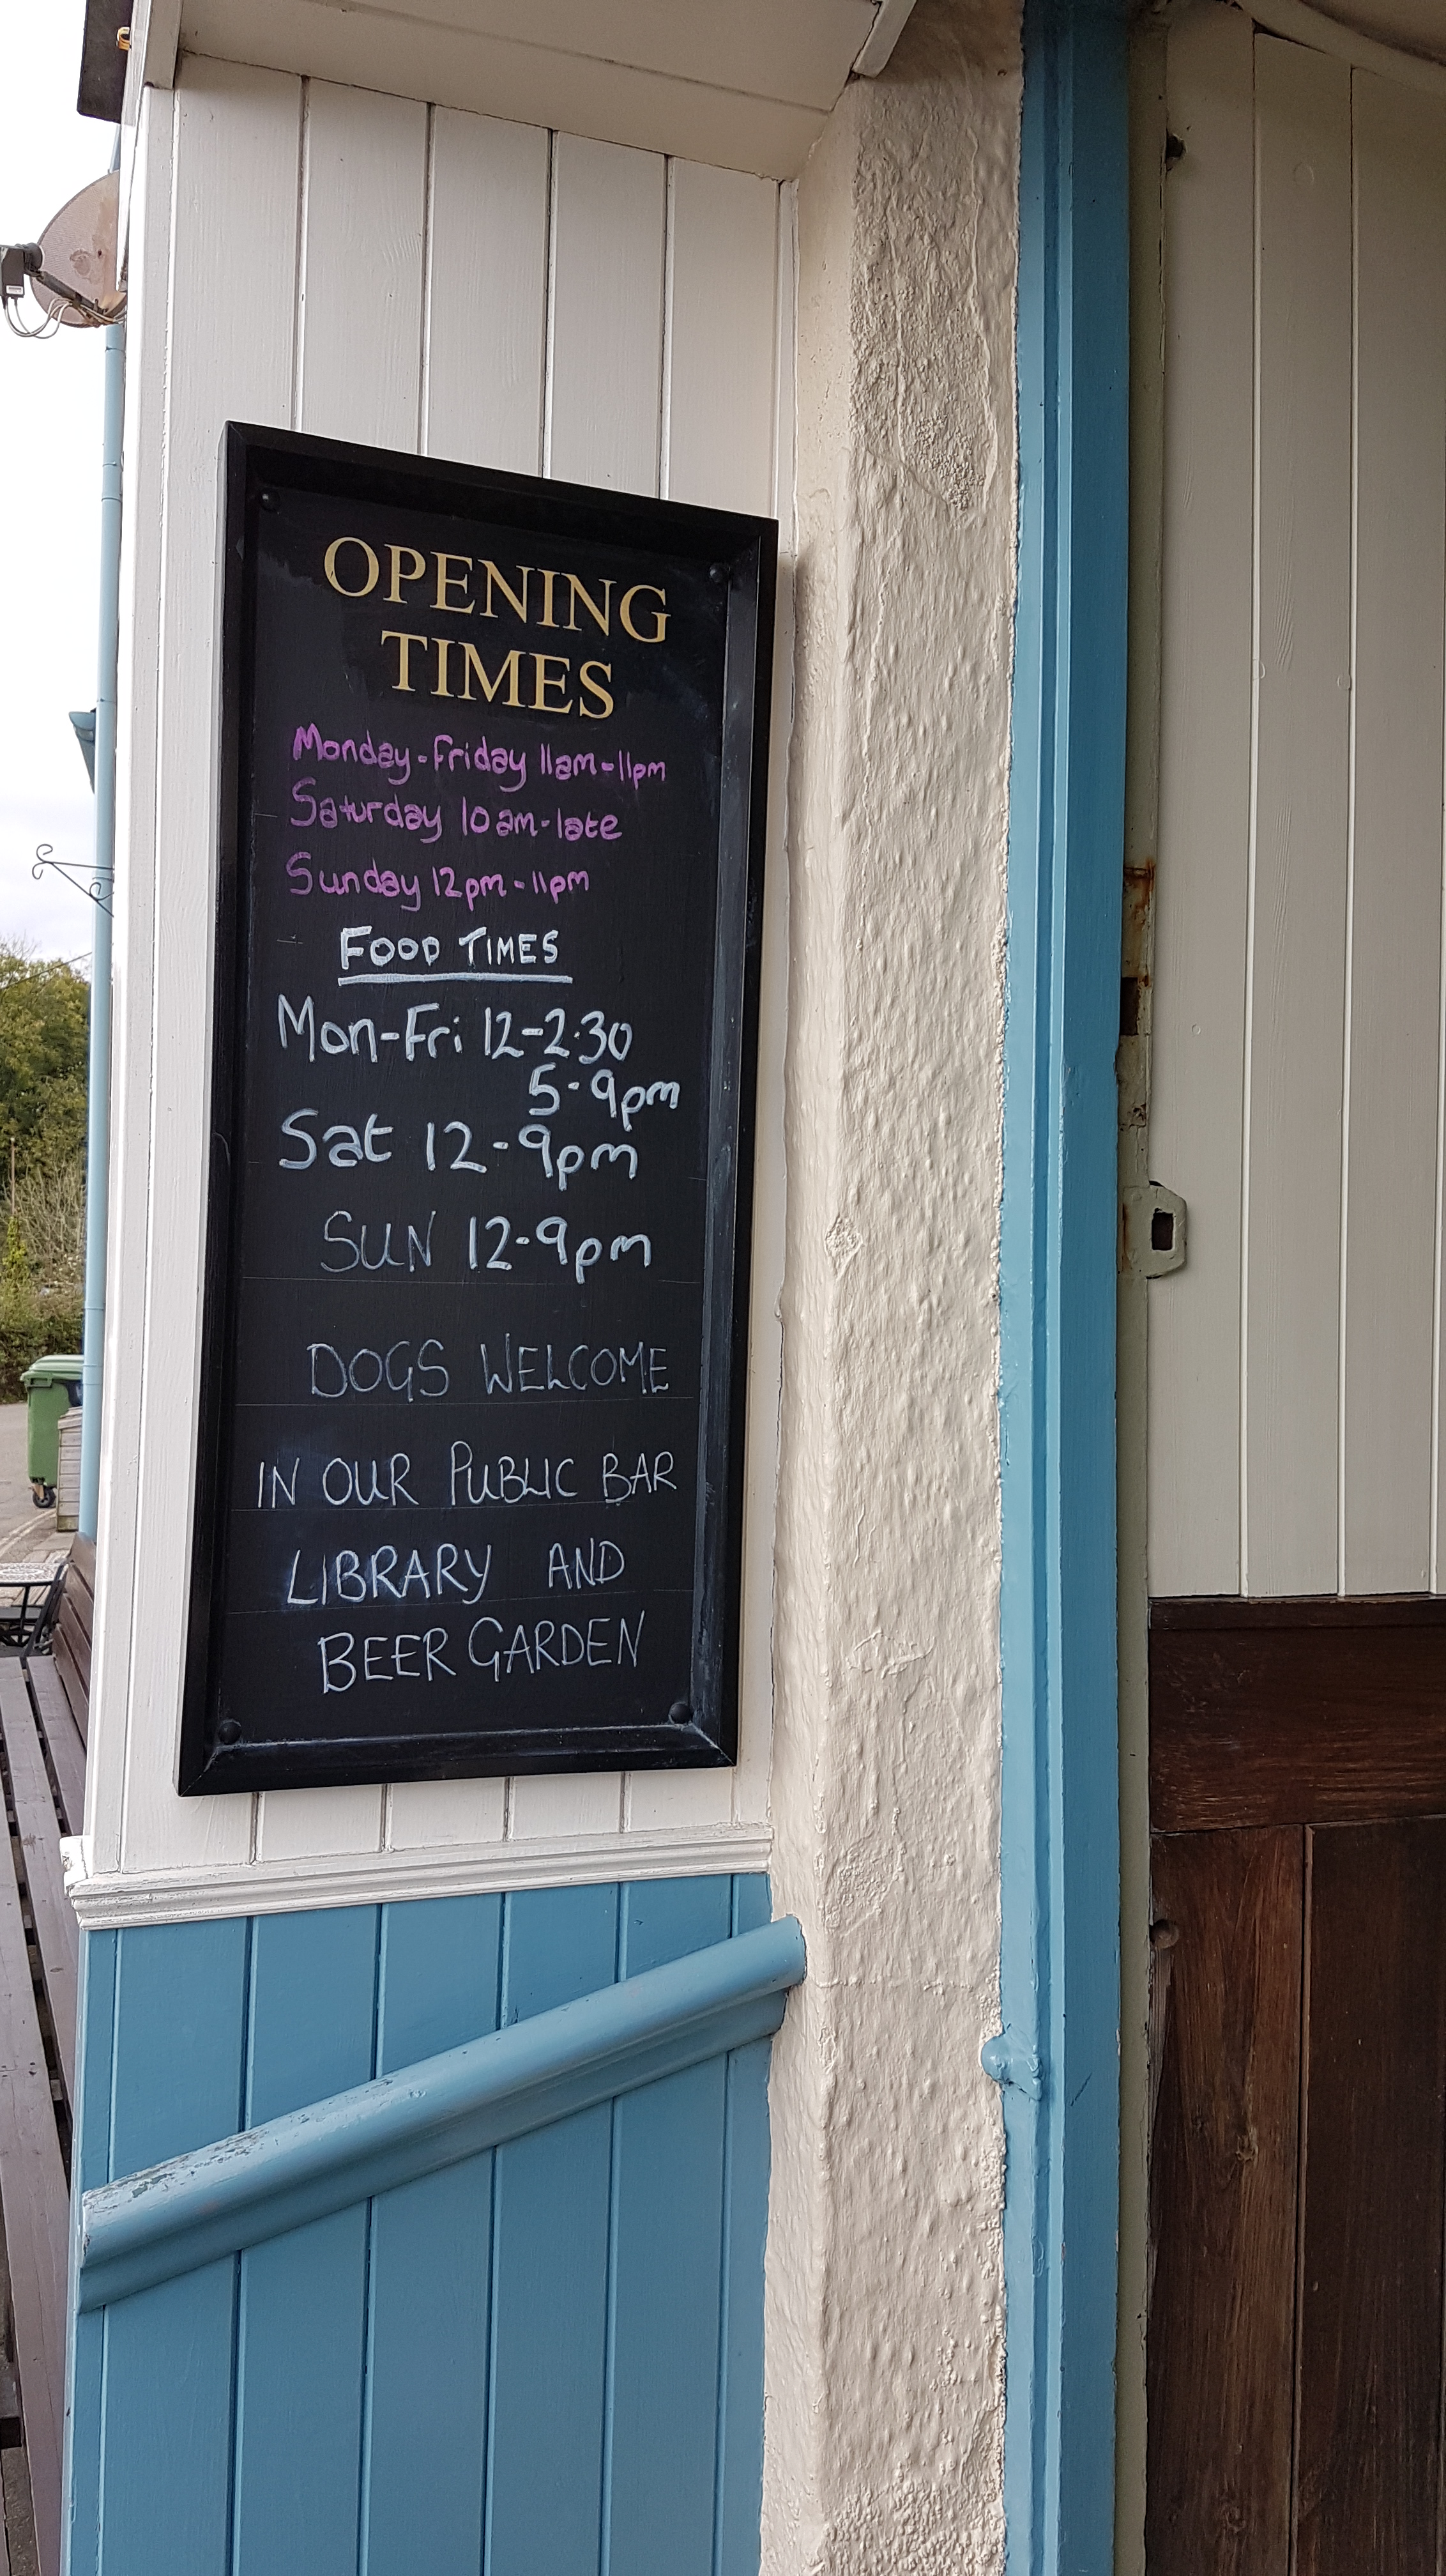 OPENING
TIMES
Monday-Friday 11am-11pm
Saturday 10am-late
Sunday 12pm-11pm
FOOD TIMES
Mon-Fri 12-2:30
5-9pm
Sat 12-9pm
SUN 12-9pm
DOGS WELCOME
IN OUR PUBLIC BAR
LIBRARY AND
BEER GARDEN